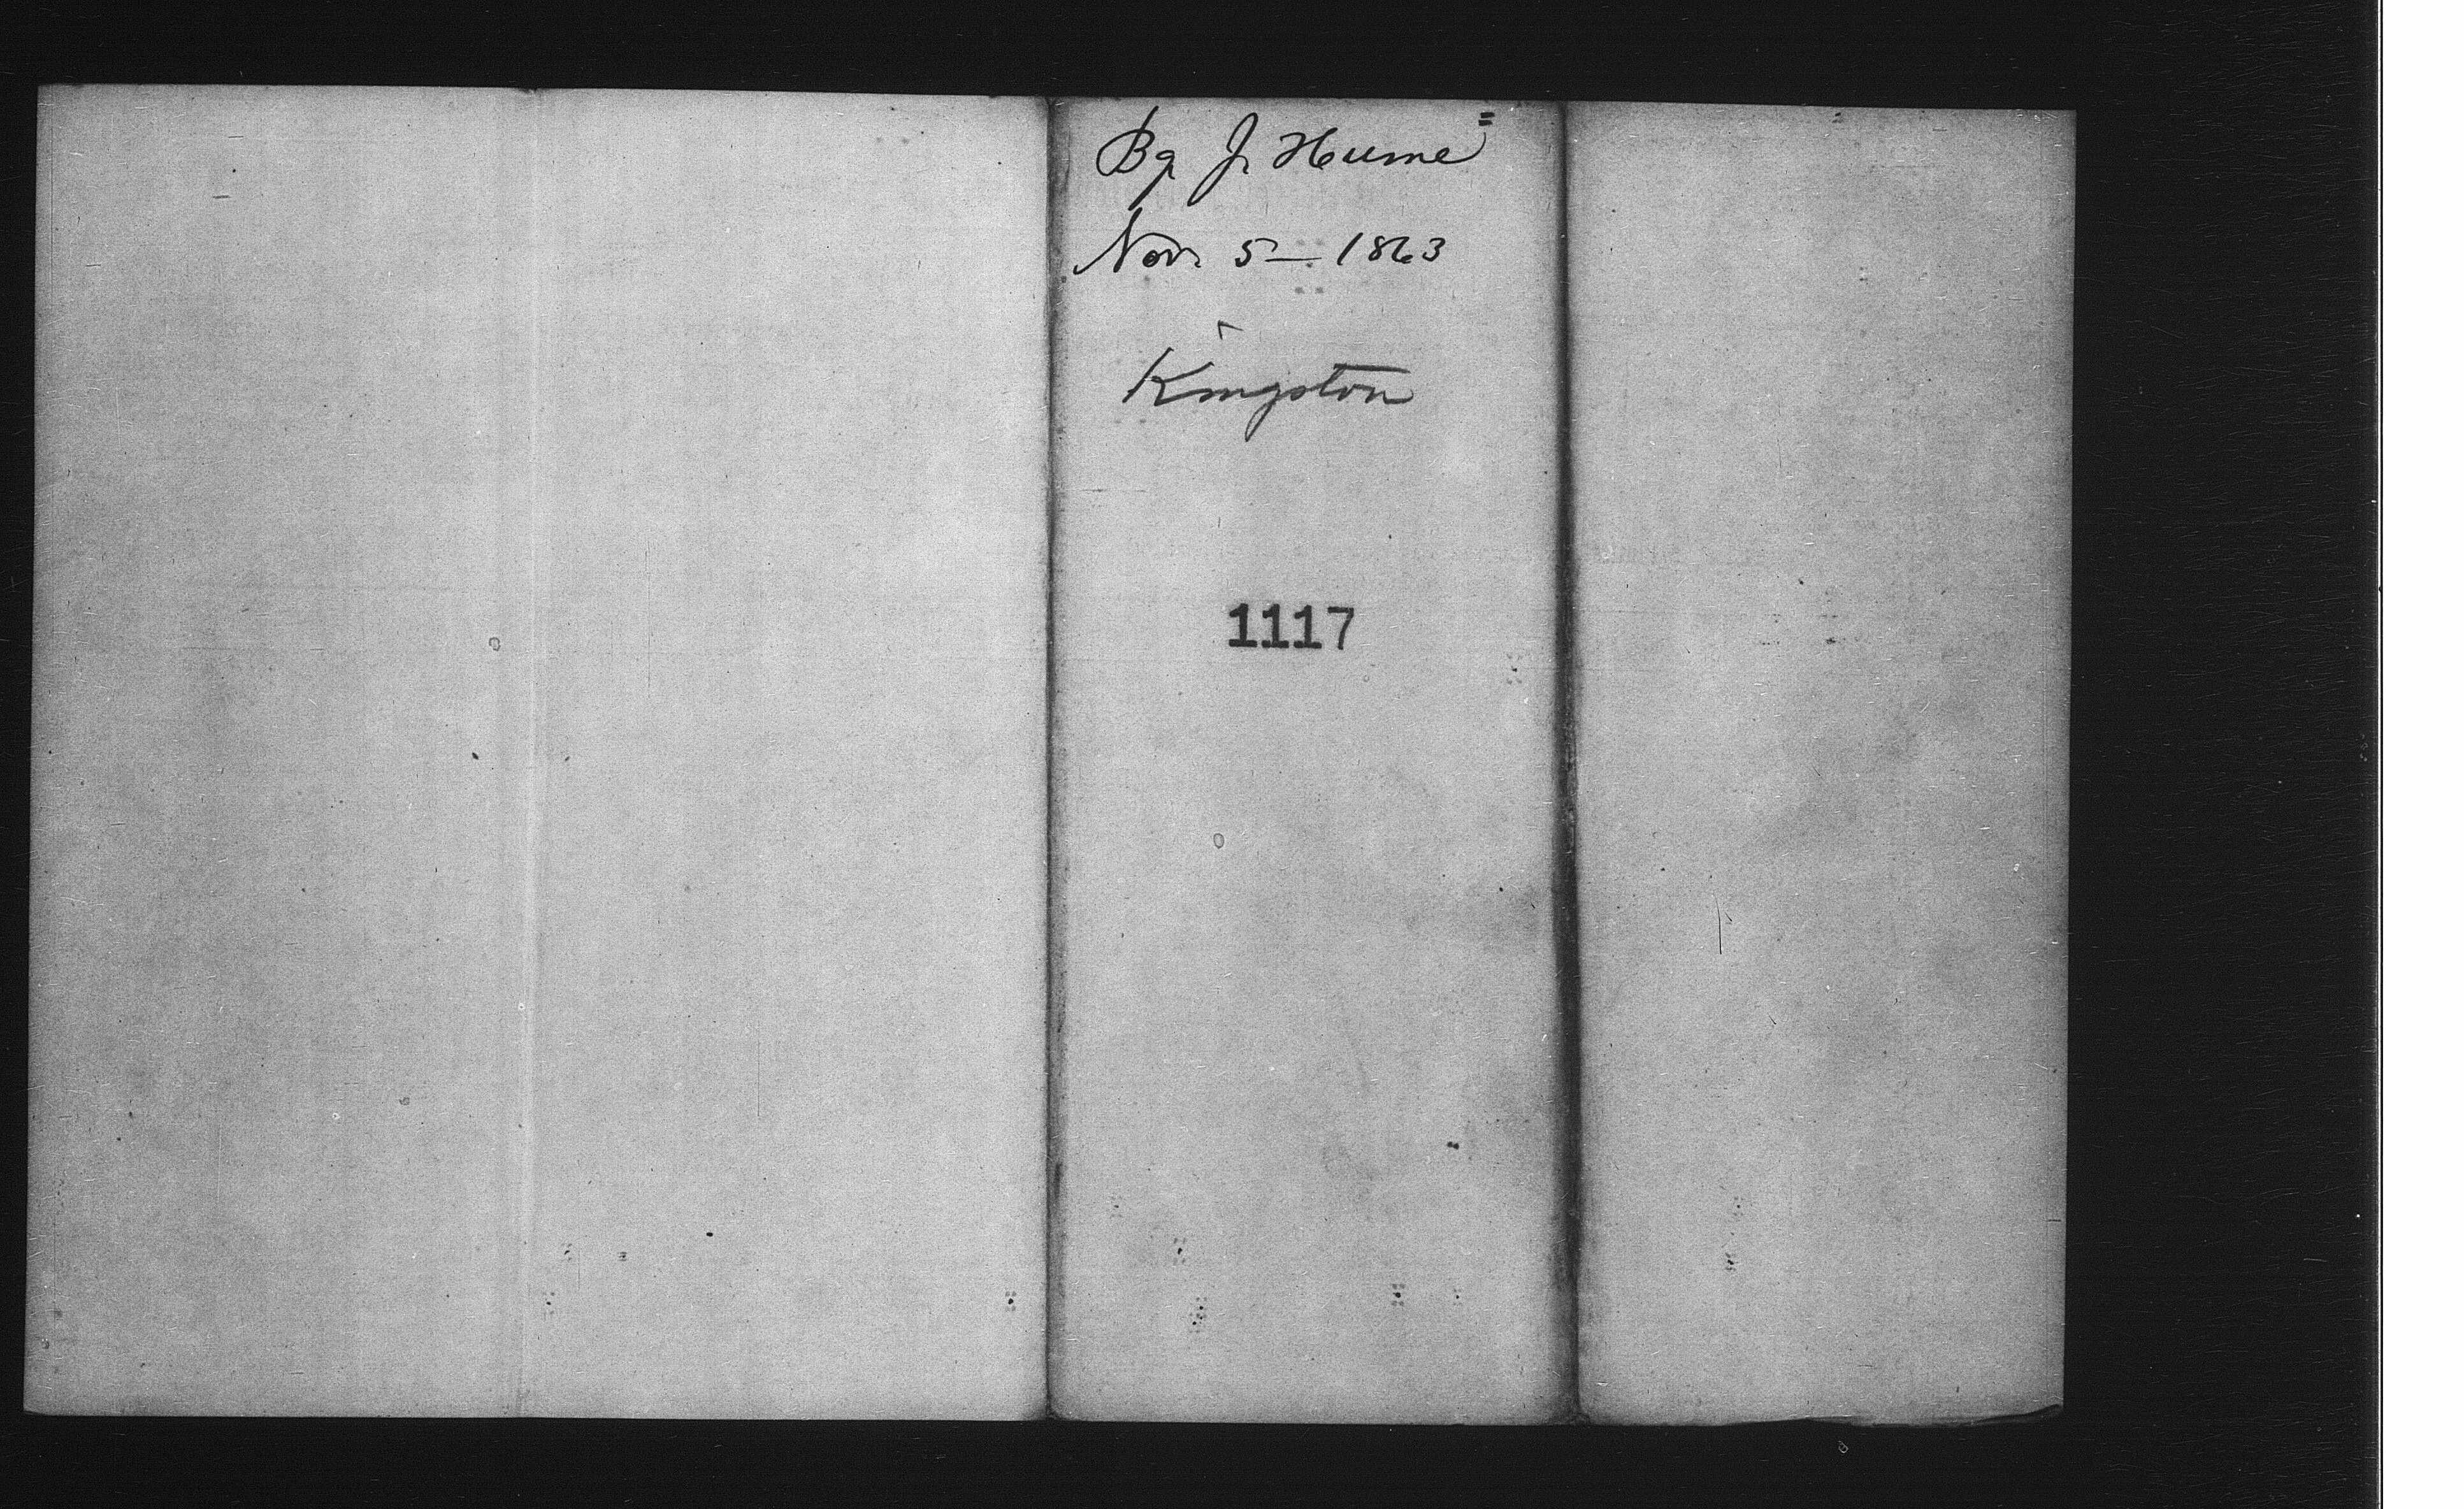 Bg J. Hume
Nov. 5 — 1863
Kingston
1117